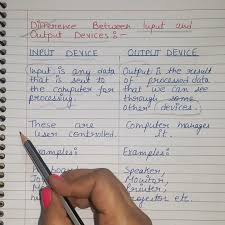 Difference Between Input and
Output Devices:-
INPUT DEVICE
OUTPUT DEVICE
Input is any data
that is sent to
the computer for
processing.
Output is the result
of processed data
that we can see
through some
other devices.
These are
user controlled.
Computer manages
it.
Examples:
Examples:
Speaker,
Monitor,
Printer,
etc.